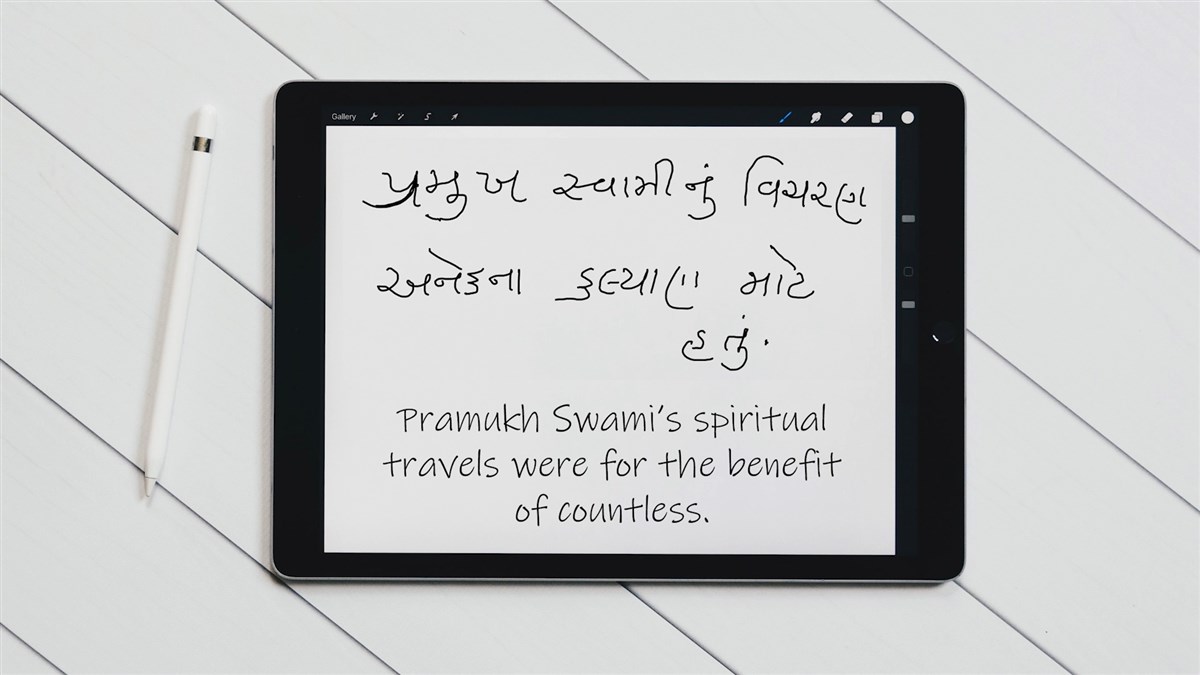 Gallery
પ્રમુખ સ્વામીનું વિચરણ
અનેકના કલ્યાણ માટે
હતું.
Pramukh Swami's spiritual
travels were for the benefit
of countless.